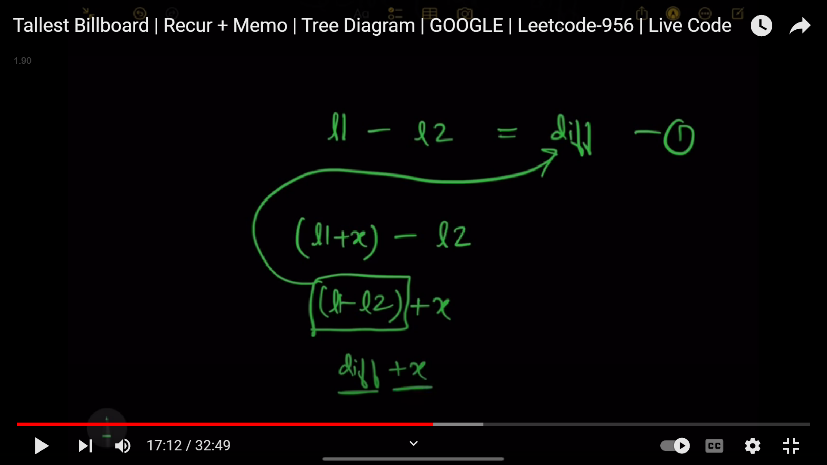 Tallest Billboard | Recur + Memo | Tree Diagram | GOOGLE | Leetcode-956 | Live Code
1.90
l1 - l2 = diff - ①
(l1+x) - l2
(l1-l2)+x
diff +x
17:12 / 32:49
CC